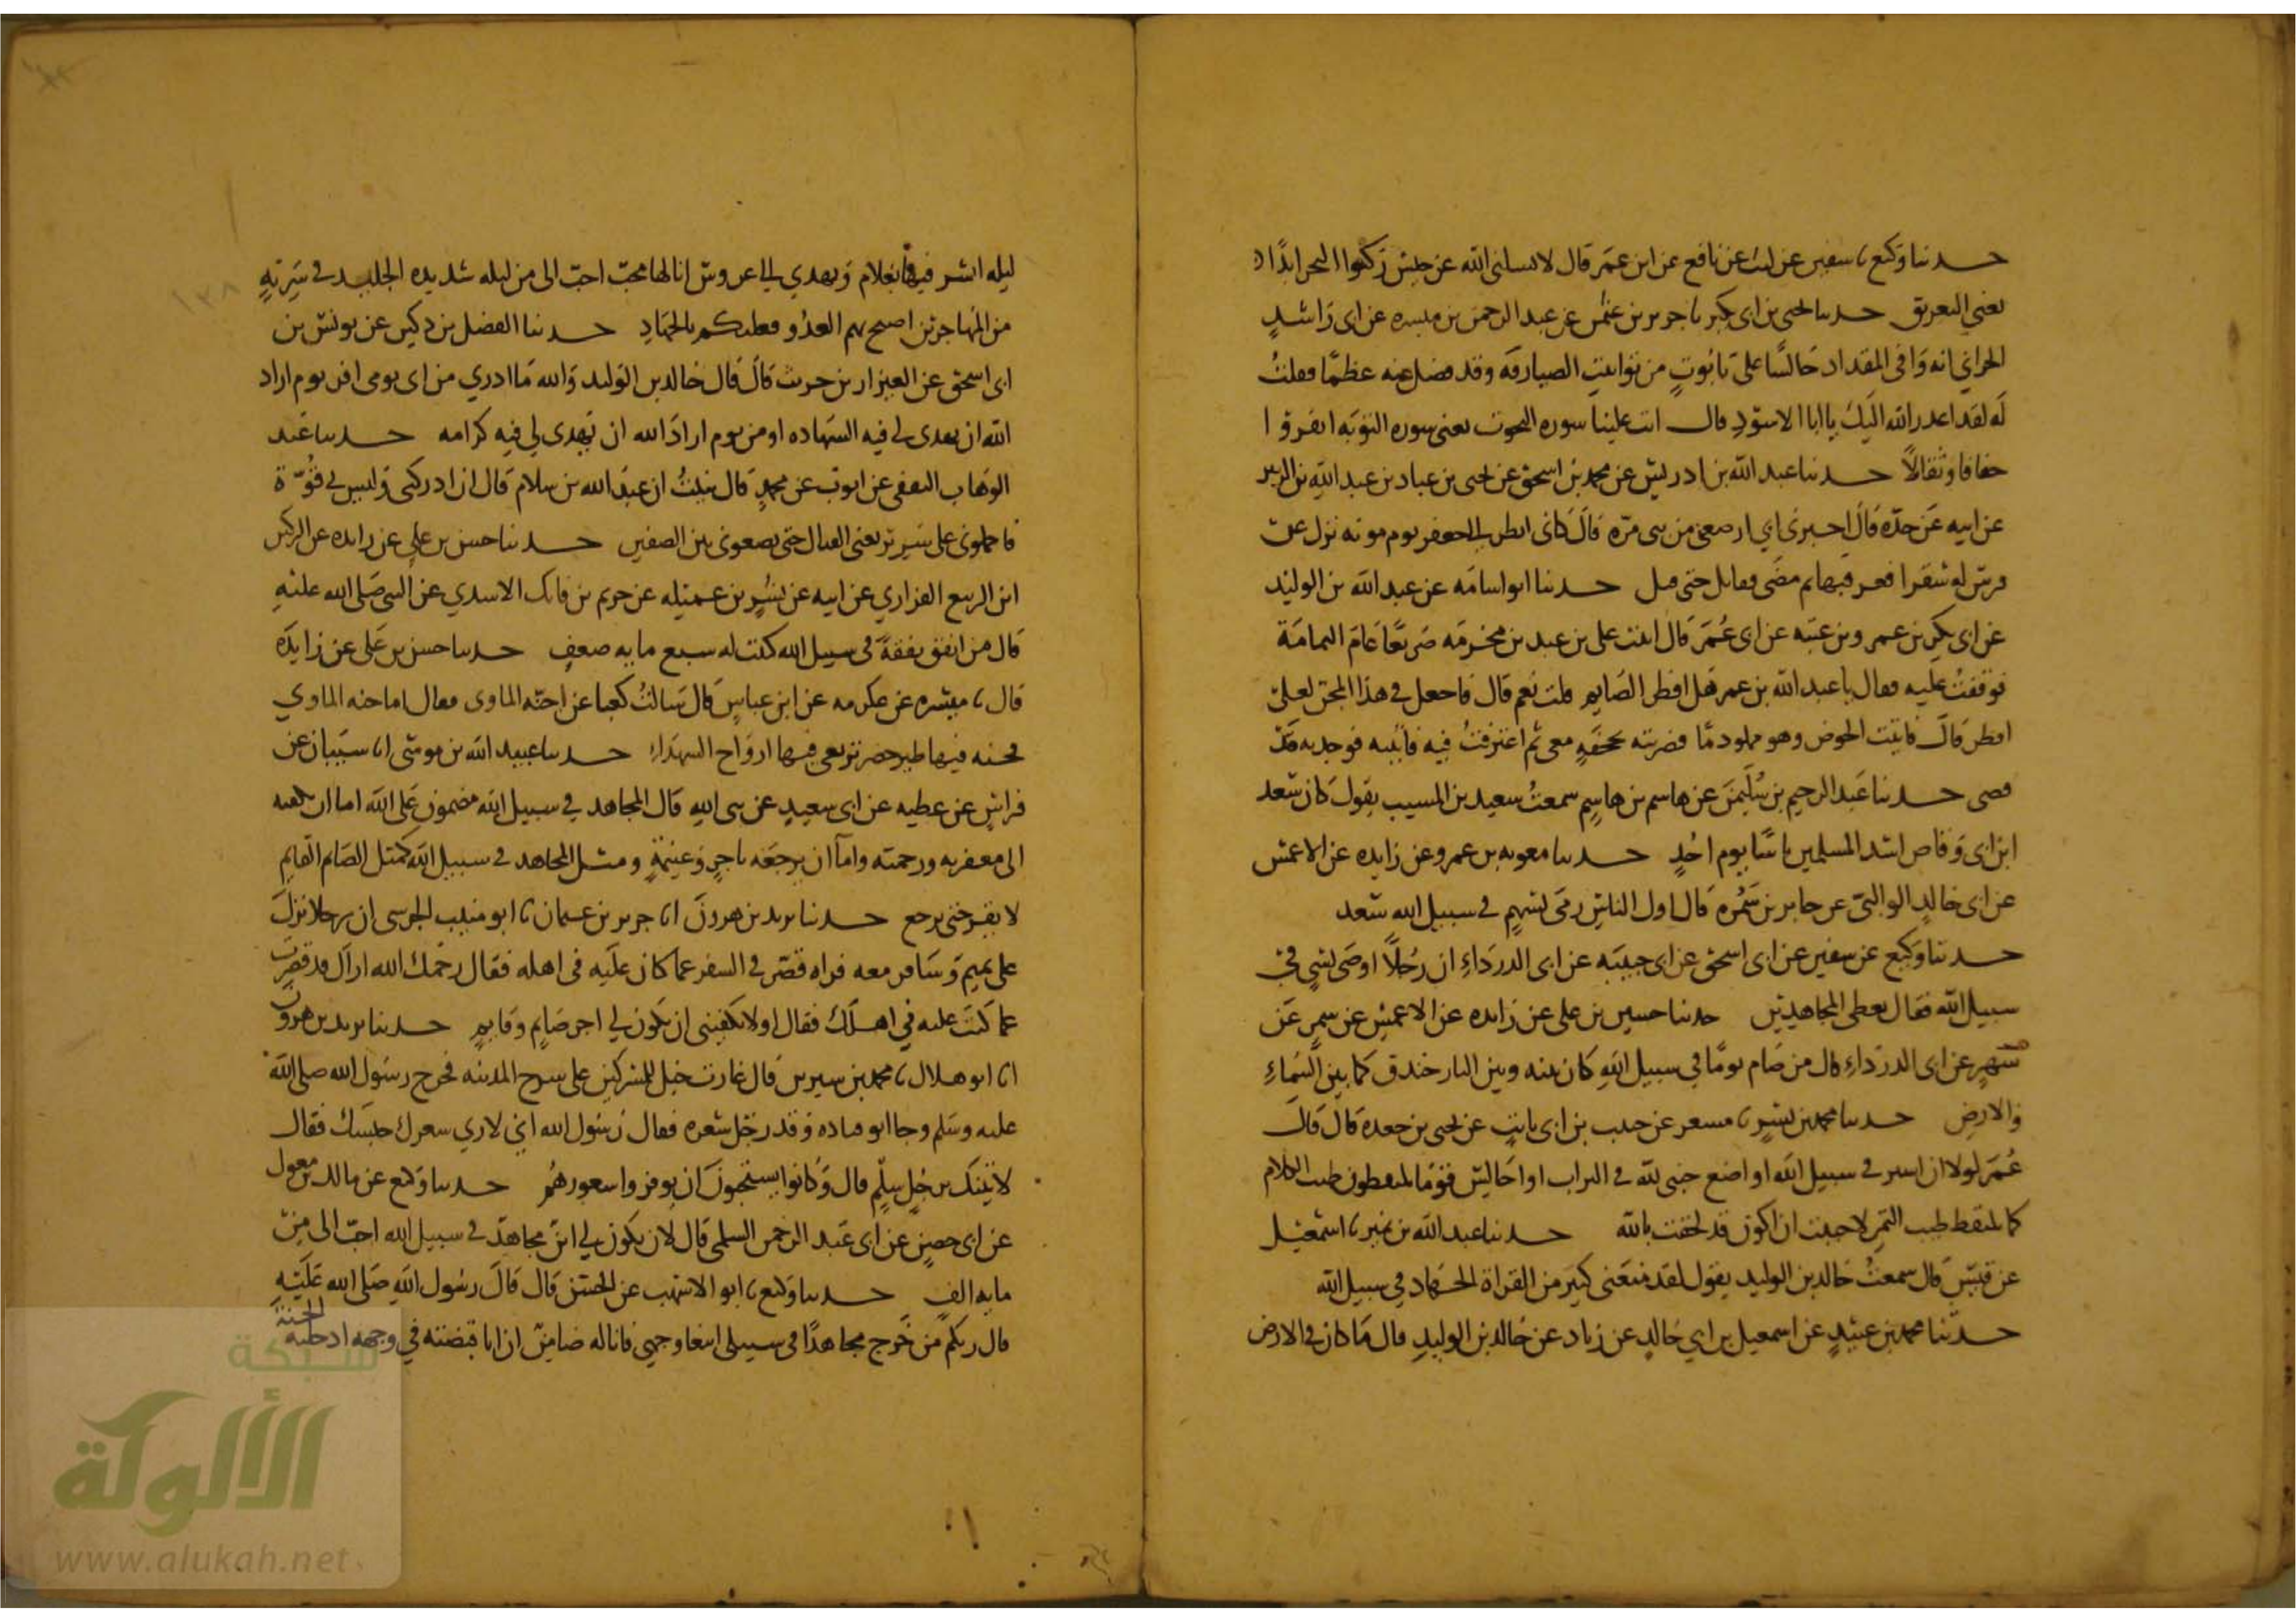 حدثنا وكيع ثنا سفين عن ليث عن نافع عن ابن عمر قال لا يسلني الله عن جيش ركبوا البحر ابدًا
يعني التغرير حدثنا يحيى بن ابي بكير ثنا حرير بن عثمن عن عبد الرحمن بن ميسره عن ابي راشدٍ
الحراني انه وافى المقداد جالسًا على تابوتٍ من توابيت الصيارفه وقد فضل عنه عظمًا فقلتُ
له لقد اعذر الله اليك يا ابا الاسود قال اتت علينا سوره البحوث يعني سوره التوبه انفروا
خفافا وثقالاً حدثنا عبد الله بن ادريس عن محمد بن اسحق عن يحيى بن عباد بن عبد الله بن الزبير
عن ابيه عن جده قال اخبرني ابي ارضعني من بني مره قال كاني انظر الى جعفر يوم موته نزل عن
فرس له شقرا فعرقبها ثم مضى فقاتل حتى قتل حدثنا ابو اسامه عن عبد الله بن الوليد
عن ابي بكر بن عمرو بن عتبه عن ابن عُمَر قال اتيت على بن عبد بن مخرمه صريعًا عام اليمامة
فوقفتُ عليه فقال يا عبد الله بن عمر هل افطر الصايم قلت نعم قال فاجعل في هذا المجن لعلي
افطر قال فاتيت الحوض وهو مملو دمًا فضربته بحجفةٍ معي ثم اغترفتُ فيه فاتيته فوجدته قد
قضى حدثنا عبد الرحيم بن سُليمن عن هاشم بن هاشمٍ سمعتُ سعيد بن المسيب يقول كان سعد
ابن ابي وقاص اشد المسلمين باسًا يوم احُدٍ حدثنا معويه بن عمرو عن زايده عن الاعمش
عن ابي خالدٍ الوالبي عن جابر بن سَمُره قال اول الناس رمى بسهمٍ في سبيل الله سعد
حدثنا وكيع عن سفين عن ابي اسحق عن ابي حبيبه عن ابي الدرداءِ ان رجُلاً اوصى بشيٍ في
سبيل الله فقال يعطى المجاهدين حدثنا حسين بن علي عن زايده عن الاعمش عن سمر عن
شهرٍ عن ابي الدرداءِ قال من صام يومًا في سبيل الله كان بينه وبين النار خندق كما بين السماءِ
والارضِ حدثنا محمد بن بشرٍ ثنا مسعر عن حبيب بن ابي ثابتٍ عن يحيى بن جعده قال قال
عُمَر لولا ان اسير في سبيل الله او اضع جنبي لله في التراب او اجالس قومًا يلتقطون طيب الكلام
كما يلتقط طيب التمر لاحببت ان اكون قد لحقت بالله حدثنا عبد الله بن نمير ثنا اسمعيل
عن قيسٍ قال سمعتُ خالد بن الوليد يقول لقد منعني كثير من القراة الجهاد في سبيل الله
حدثنا محمد بن عبيدٍ عن اسمعيل بن ابي خالدٍ عن زياد عن خالد بن الوليدِ قال ما كان في الارض
ليله ابشر فيها بغلام ويهدي الي عروس انا لها محب احب الي من ليله شديده الجليد في سريةٍ
من المهاجرين اصبح بهم العدُو فعليكم بالجهادِ حدثنا الفضل بن دكين عن يونس بن
ابي اسحق عن العيزار بن حريث قال قال خالد بن الوليد والله ما ادري من اي يومي افر يوم اراد
الله ان يهدى لي فيه الشهاده او من يوم اراد الله ان يهدى لي فيه كرامه حدثنا عبد
الوهاب الثقفي عن ايوب عن محمدٍ قال نبيتُ ان عبد الله بن سلام قال ان ادركني وليس لي قُوّة
فاحملوني على سرير يعني القتال حتى تضعوني بين الصفين حدثنا حسن بن علي عن زايده عن الركين
ابن الربيع الفزاري عن ابيه عن يسير بن عميله عن خريم بن فاتك الاسدي عن النبي صلى الله عليه
قال من انفق نفقةً في سبيل الله كتبت له سبع مايه ضعفٍ حدثنا حسن بن علي عن زايده
قال ثنا ميسره عن عكرمه عن ابن عباسٍ قال سالتُ كعبا عن جنه الماوى فقال اما جنه الماوي
فجنه فيها طير خضر ترتعي فيها ارواح الشهداءِ حدثنا عبيد الله بن موسى انا شيبان عن
فراسٍ عن عطيه عن ابي سعيدٍ عن نبي الله قال المجاهد في سبيل الله مضمون على الله اما ان يكفته
الى مغفرته ورحمته واما ان يرجعه باجرٍ وغنيمةٍ ومثل المجاهد في سبيل الله كمثل الصايم القايم
لا يفتر حتى يرجع حدثنا يزيد بن هرون انا حرير بن عثمان ثنا ابو منيب الجرشي ان رجلا نزل
على تميم وسافر معه فراه قصر في السفر عما كان عليه في اهله فقال رحمك الله اراك قد قصرت
عما كنت عليه في اهلك فقال اولا يكفيني ان يكون لي اجر صايمٍ وقايمٍ حدثنا يزيد بن هرون
انا ابو هلال ثنا محمد بن سيرين قال غارت خيل للمشركين على سرح المدينه فخرج رسول الله صلى الله
عليه وسلم وجا ابو قتاده وقد رجّل شعره فقال رسول الله اني لاري شعرك حبسك فقال
لاتينك برجُلٍ سلمٍ قال وكانوا يستحبون ان يوفروا شعورهُم حدثنا وكيع عن مالك بن مغول
عن ابي حصينٍ عن ابي عبد الرحمن السلمي قال لان يكون لي ابن مجاهدٌ في سبيل الله احب الي من
مايه الفٍ حدثنا وكيع ثنا ابو الاشهب عن الحسن قال قال رسول الله صلى الله عليه
قال ربكم من خرج مجاهدًا في سبيلي ابتغا وجهي فانا له ضامنٌ ان انا قبضته في وجهه ادخلته الجنة
شبكة
الألوكة
www.alukah.net